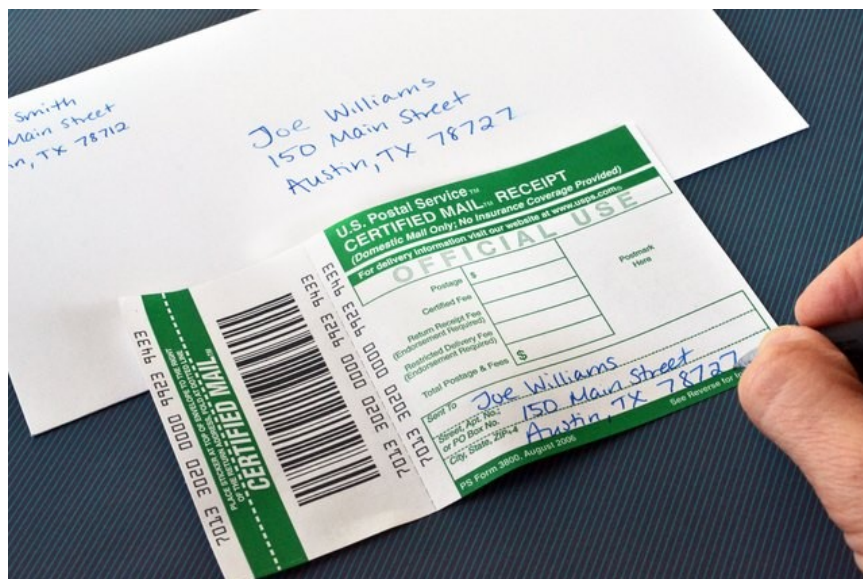 Smith
Main Street
TX 78712
Joe Williams
150 Main Street
Austin, TX 78727
U.S. Postal Service™
CERTIFIED MAIL™ RECEIPT
(Domestic Mail Only; No Insurance Coverage Provided)
For delivery information visit our website at www.usps.com®
OFFICIAL USE
Postage $
Certified Fee
Return Receipt Fee
(Endorsement Required)
Restricted Delivery Fee
(Endorsement Required)
Total Postage & Fees $
Postmark
Here
Sent To Joe Williams
Street, Apt. No.;
or PO Box No. 150 Main Street
City, State, ZIP+4 Austin, TX 78727
PS Form 3800, August 2006
See Reverse for
7013 3020 0000 9923 9433
7013 3020 0000 9923 9433
PLACE STICKER AT TOP OF ENVELOPE TO THE RIGHT
OF THE RETURN ADDRESS, FOLD AT DOTTED LINE
CERTIFIED MAIL™
7013 3020 0000 9923 9433